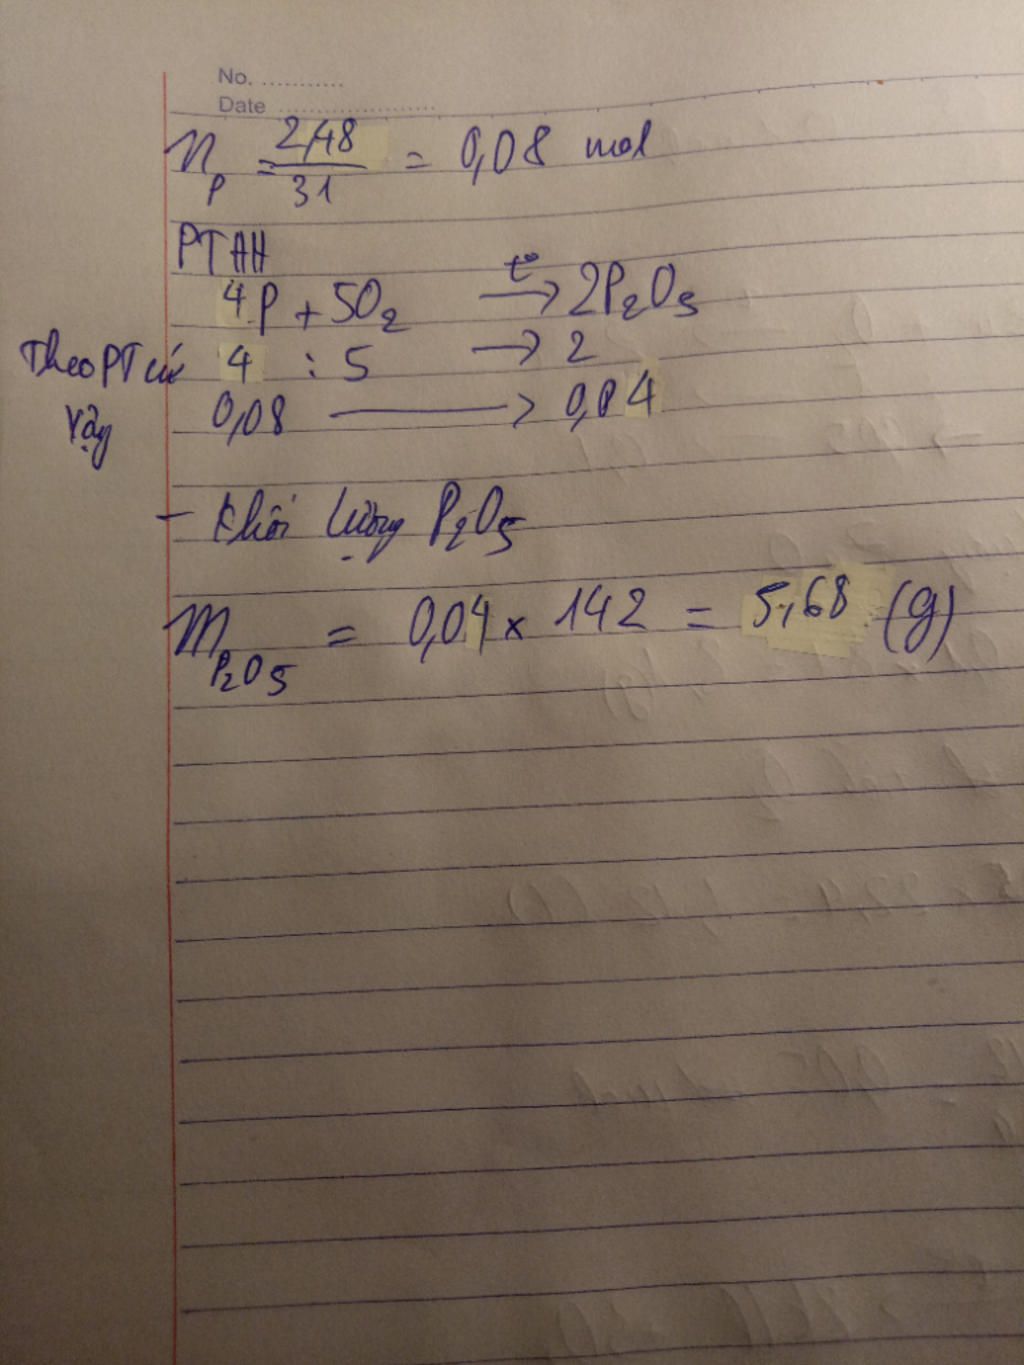 No. ...........
Date .....................
n_P = 2,48/31 = 0,08 mol
PTHH
4P + 5O₂ t°→ 2P₂O₅
Theo PT cứ 4 : 5 → 2
Vậy 0,08 → 0,04
- Khối lượng P₂O₅
m_P₂O₅ = 0,04 x 142 = 5,68 (g)